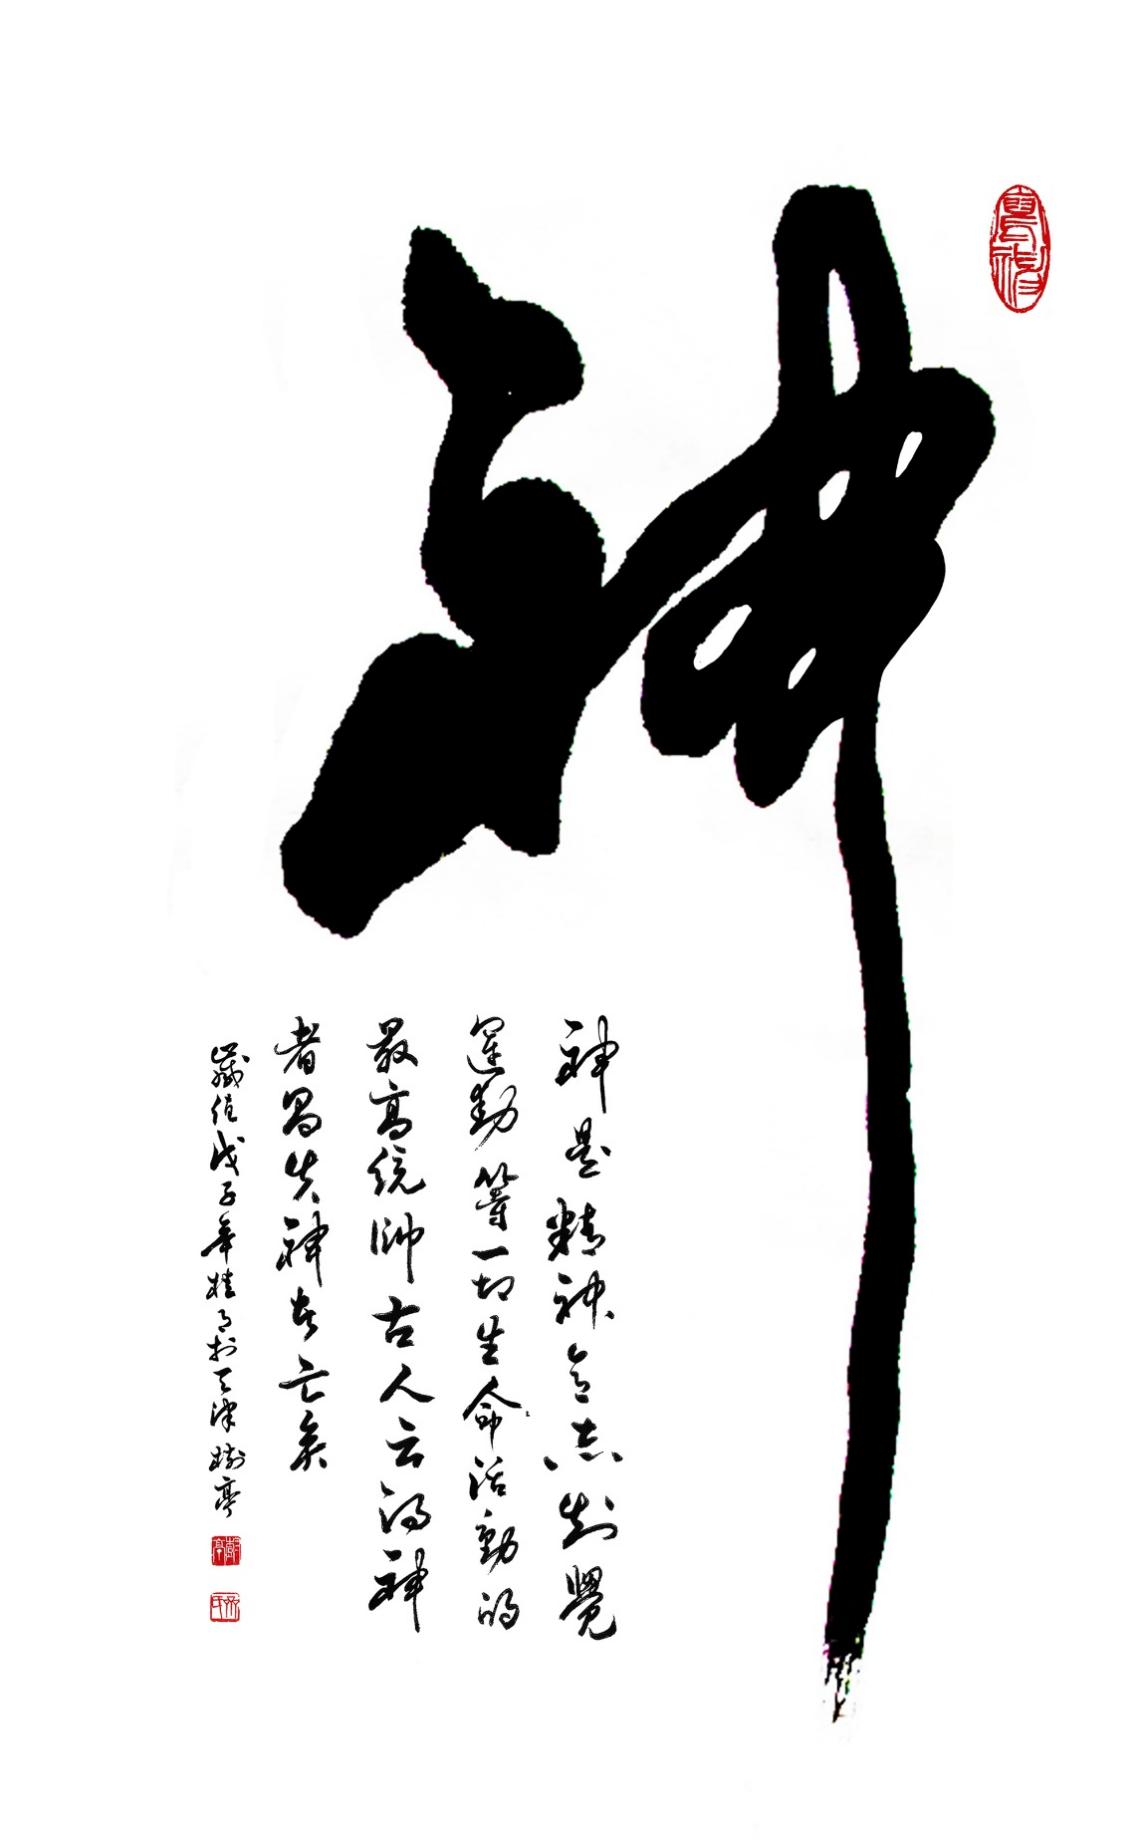 神
神是精神意志知覺
運動等一切生命活動的
最高統帥古人云得神
者昌失神者亡矣
歲值戊子年桂月於天津樹亭